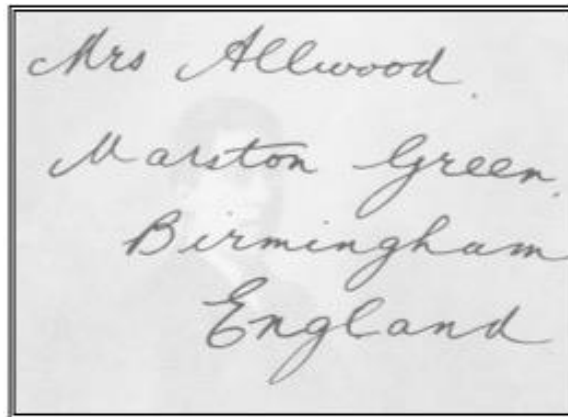 Mrs Allwood.
Marston Green.
Birmingham
England